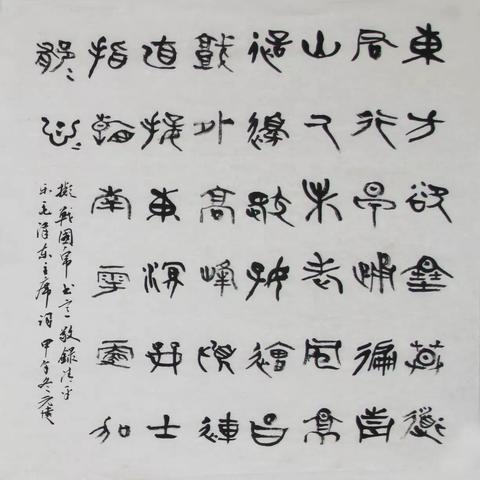 東方欲曉莫道
君行早踏遍青
山人未老風景
這邊獨好會昌
城外高峰顛連
直接東溟戰士
指看南粵更加
鬱〻葱〻
擬戰國帛書意敬録清平
樂毛澤東主席詞甲午冬